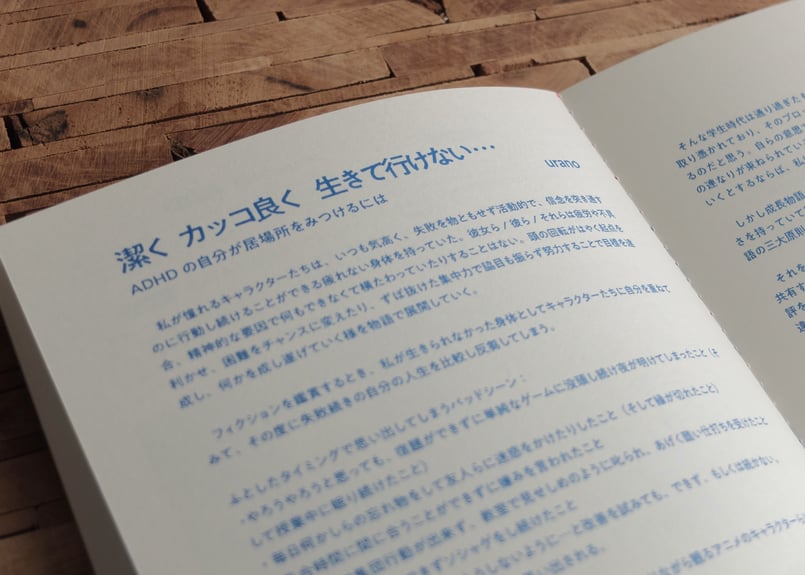 潔く カッコ良く 生きて行けない…
urano
ADHD の自分が居場所をみつけるには
私が憧れるキャラクターたちは、いつも気高く、失敗を物ともせず活動的で、信念を突き通す
のに行動し続けることができる疲れない身体を持っていた。彼女ら / 彼ら / それらは疲労や不具
合、精神的な要因で何もできなくて横たわっていたりすることはない。頭の回転がはやく起点を
利かせ、困難をチャンスに変えたり、ずば抜けた集中力で脇目も振らず努力することで目標を達
成し、何かを成し遂げていく様を物語で展開していく。
フィクションを鑑賞するとき、私が生きられなかった身体としてキャラクターたちに自分を重ねて
みて、その度に失敗続きの自分の人生を比較し反芻してしまう。
ふとしたタイミングで思い出してしまうバッドシーン:
・やろうやろうと思っても、宿題ができずに単純なゲームに没頭し続け夜が明けてしまったこと(そ
して授業中に眠り続けたこと)
・毎日何かしらの忘れ物をして友人らに迷惑をかけたりしたこと(そして縁が切れたこと)
合時間に間に合うことができずに嫌みを言われたこと
集団行動が出来ず、教室で見せしめのように叱られ、あげく酷い仕打ちを受けたこと
ずソシャゲをし続けたこと
うしないように…と改善を試みても、できず、もしくは続かない。
い出される。
ながら観るアニメのキャラクターら
そんな学生時代は通り過ぎた
取り憑かれており、そのプロ
るのだと思う。自らの意思で
の連なりが束ねられてい
いくとするならば、私
しかし成長物語
さを持っていて
語の三大原則
それを
共有す
評を